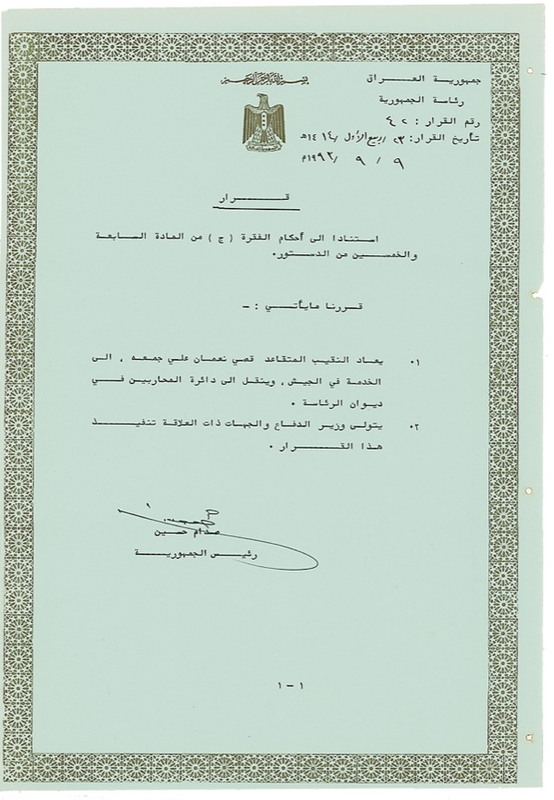 بسم الله الرحمن الرحيم
جمهورية العـــراق
رئاسة الجمهورية
رقم القرار : ٤٢
تأريخ القرار: ٢٣ / ربيع الأول / ١٤١٤هـ
٩ / ٩ / ١٩٩٣م
قـــرار
استنادا الى أحكام الفقرة ( ج ) من المادة السابعة
والخمسين من الدستور.
قررنا مايأتـي : -
١. يعاد النقيب المتقاعد قصي نعمان علي جمعه ، الى
الخدمة في الجيش ، وينقل الى دائرة المحاربين فـي
ديوان الرئاسة .
٢. يتولى وزير الدفاع والجهات ذات العلاقة تنفيـــذ
هذا القـــرار .
صدام حسين
رئيس الجمهوريـــة
١ - ١